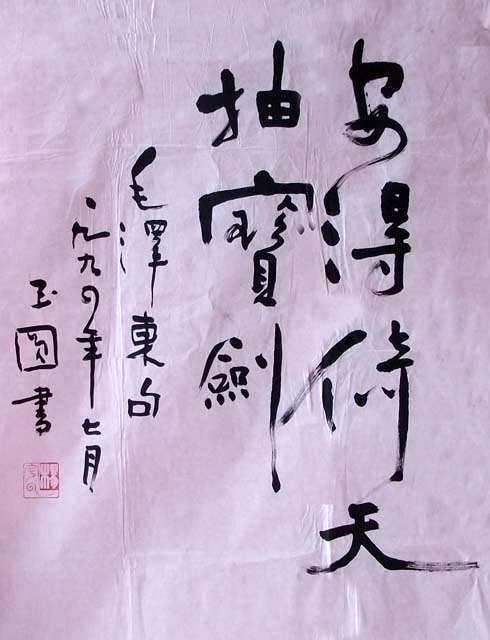 安得倚天
抽寶劍
毛澤東句
一九九〇年七月
玉圓書